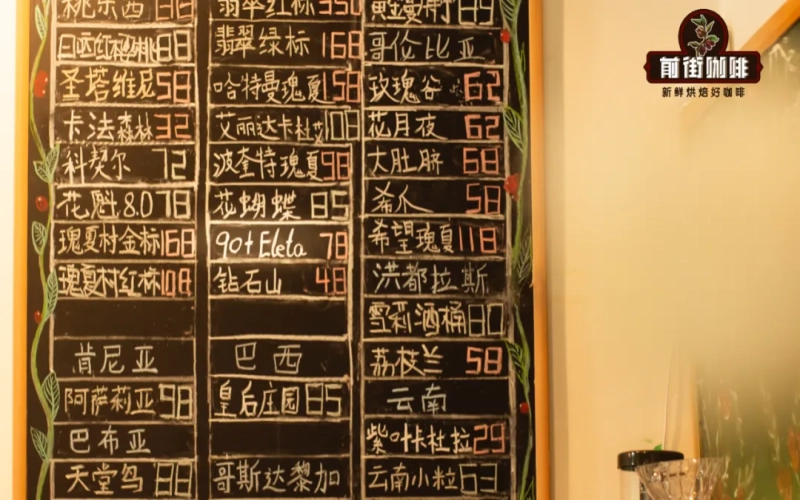 翡翠红标 350
圣塔维尼 58
卡法森林 32
科契尔 72
花魁8.0 78
瑰夏村金标 168
瑰夏村红标 108
肯尼亚
阿萨莉亚 98
巴布亚
天堂鸟 88
翡翠绿标 168
哈特曼瑰夏 158
艾丽达卡杜艾 108
波奎特瑰夏 98
花蝴蝶 85
90+Eleta 78
钻石山 48
巴西
皇后庄园 65
哥斯达黎加
哥伦比亚
玫瑰谷 62
花月夜 62
大肚脐 68
希爪 58
希望瑰夏 118
洪都拉斯
雪莉酒桶 80
荔枝兰 58
云南
紫叶卡杜拉 29
云南小粒 63
前街咖啡
新鲜烘焙好咖啡